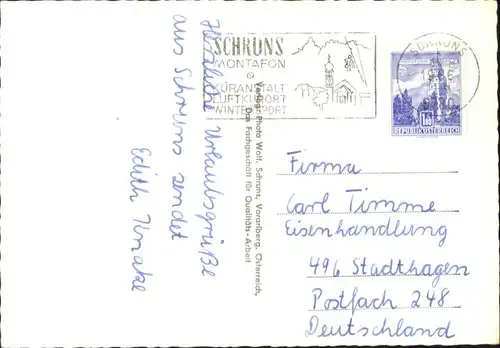 Herzliche Urlaubsgrüße
aus Schruns sendet
Edith
SCHRUNS
MONTAFON
KURANSTALT
LUFTKURORT
WINTERSPORT
SCHRUNS
REPUBLIK ÖSTERREICH
Verlag: Photo Wolf, Schruns, Vorarlberg, Österreich,
Das Fachgeschäft für Qualitäts-Arbeit
Firma
Carl Timme
Eisenhandlung
496 Stadthagen
Postfach 248
Deutschland